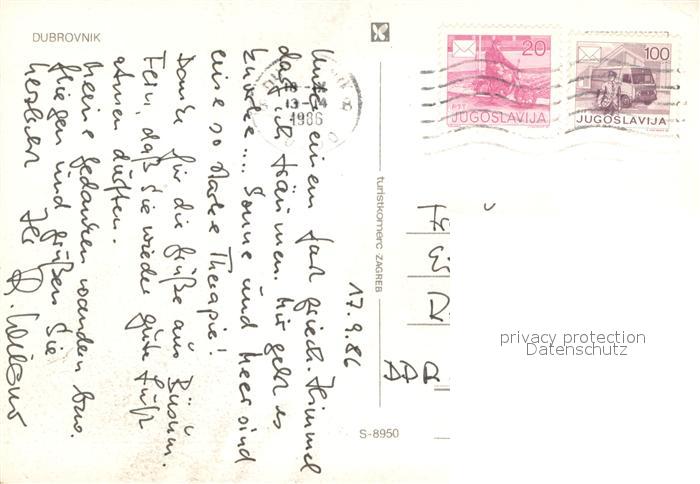 DUBROVNIK
17.9.86
Unter einem fast griech. Himmel
darf ich träumen. Mir geht es
Sonne und Meer sind
eine so starke Therapie!
Danke für die Grüße aus Büsum.
Fein, daß Sie wieder gute Luft
atmen durften.
Meine Gedanken wandern bzw.
fliegen und grüßen Sie
herzlichst Ihr
13-14
1986
turistkomerc ZAGREB
S-8950
20
PTT
JUGOSLAVIJA
100
JUGOSLAVIJA
privacy protection
Datenschutz